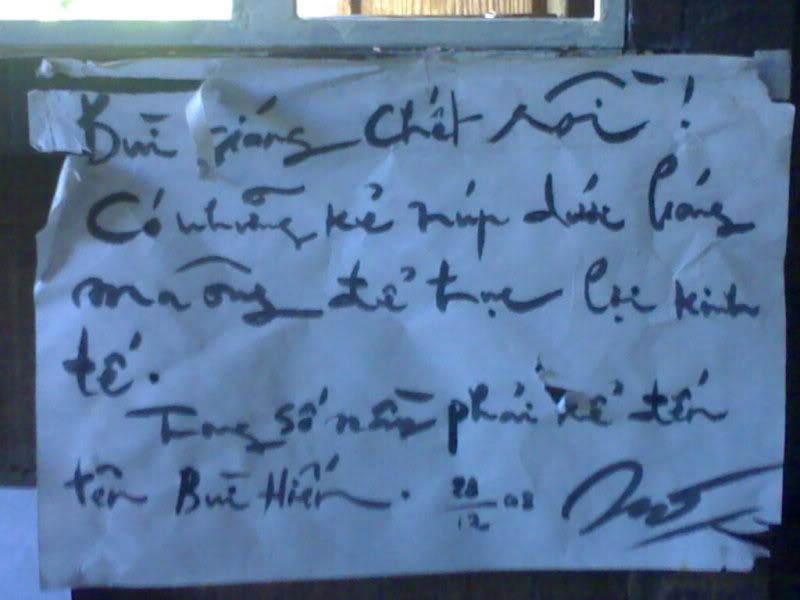 Bùi giáng chết rồi!
Có những kẻ núp dưới bóng
ma ông để trục lợi kinh
tế.
Trong số này phải kể đến
tên Bùi Hiến. 28/12 08